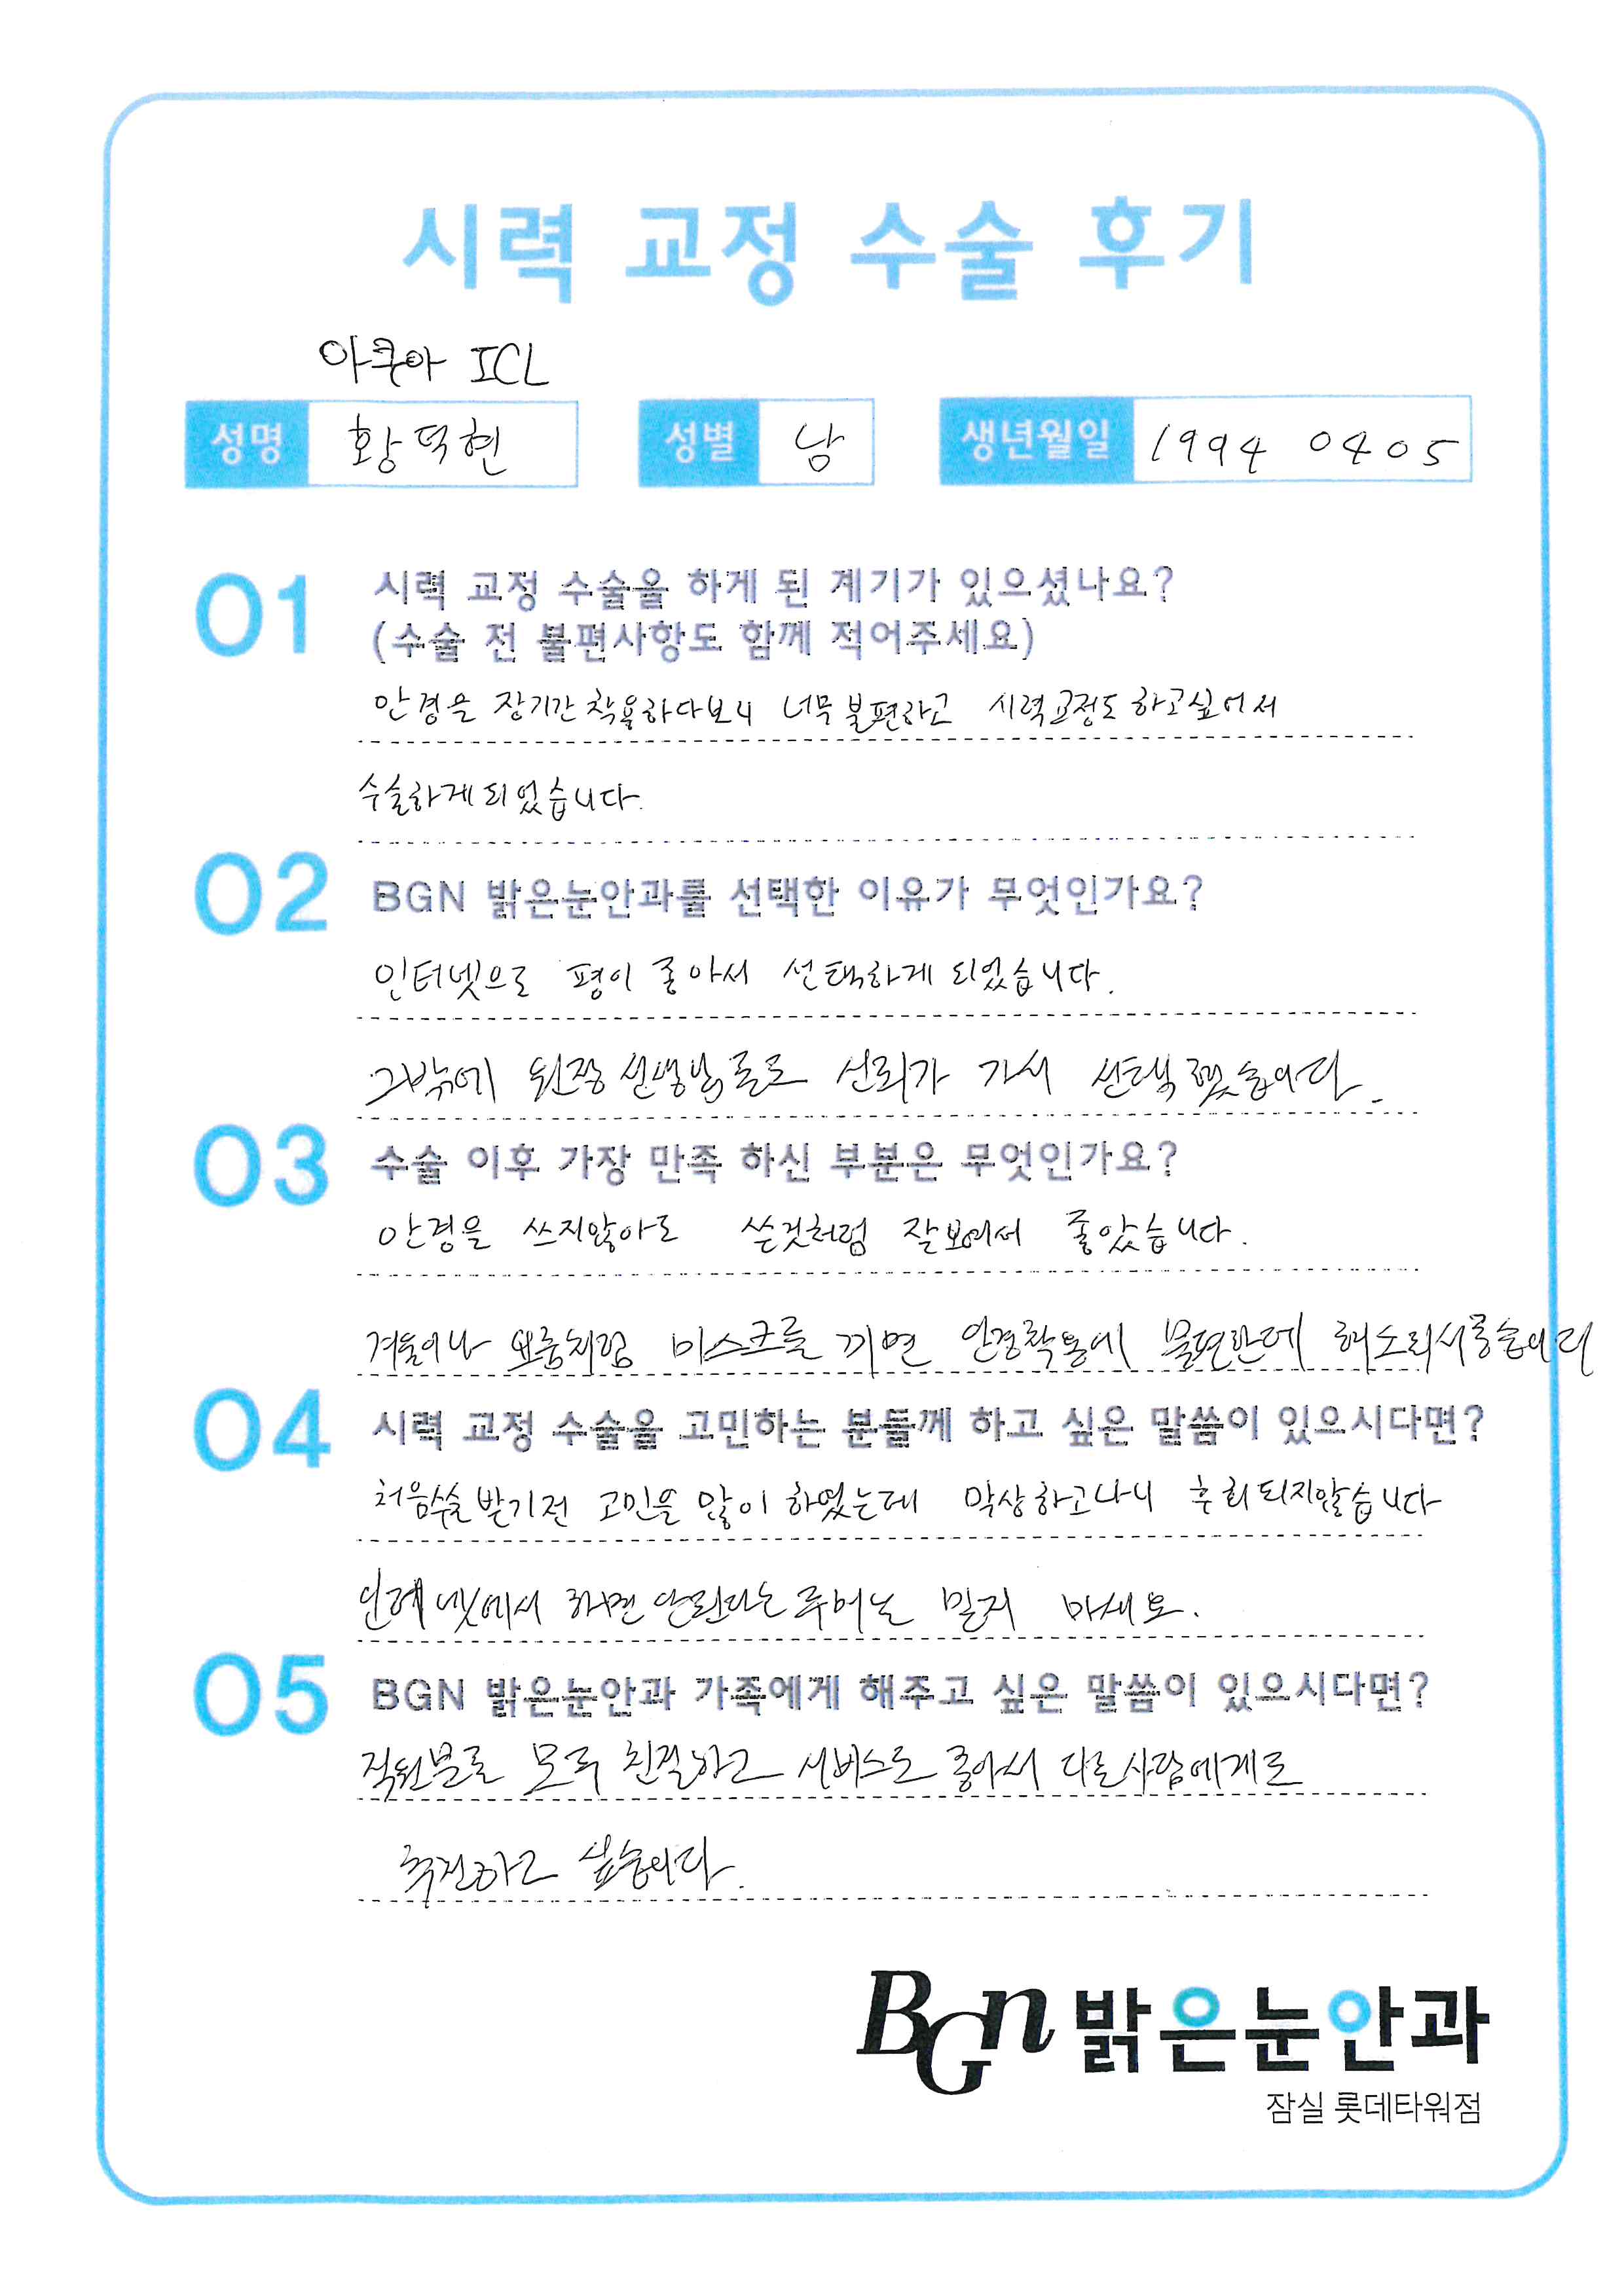 시력 교정 수술 후기
아쿠아 ICL
성명 황덕현 성별 남 생년월일 1994 0405
01 시력 교정 수술을 하게 된 계기가 있으셨나요?
(수술 전 불편사항도 함께 적어주세요)
안경을 장기간 착용하다보니 너무 불편하고 시력교정도 하고싶어서
수술하게 되었습니다.
02 BGN 밝은눈안과를 선택한 이유가 무엇인가요?
인터넷으로 평이 좋아서 선택하게 되었습니다.
그밖에 원장선생님들도 신뢰가 가서 선택했습니다.
03 수술 이후 가장 만족 하신 부분은 무엇인가요?
안경을 쓰지않아도 쓴것처럼 잘보여서 좋았습니다.
겨울이나 요즘처럼 마스크를 끼면 안경착용에 불편한데
04 시력 교정 수술을 고민하는 분들께 하고 싶은 말씀이 있으시다면?
처음수술받기전 고민을 많이 하였는데 막상하고나니 후회되지않습니다
하면 안된다는 루머는 믿지 마세요.
05 BGN 밝은눈안과 가족에게 해주고 싶은 말씀이 있으시다면?
직원분들 모두 친절하고 서비스도 좋아서 다른사람에게도
추천하고 싶습니다.
BGN 밝은눈안과
잠실 롯데타워점